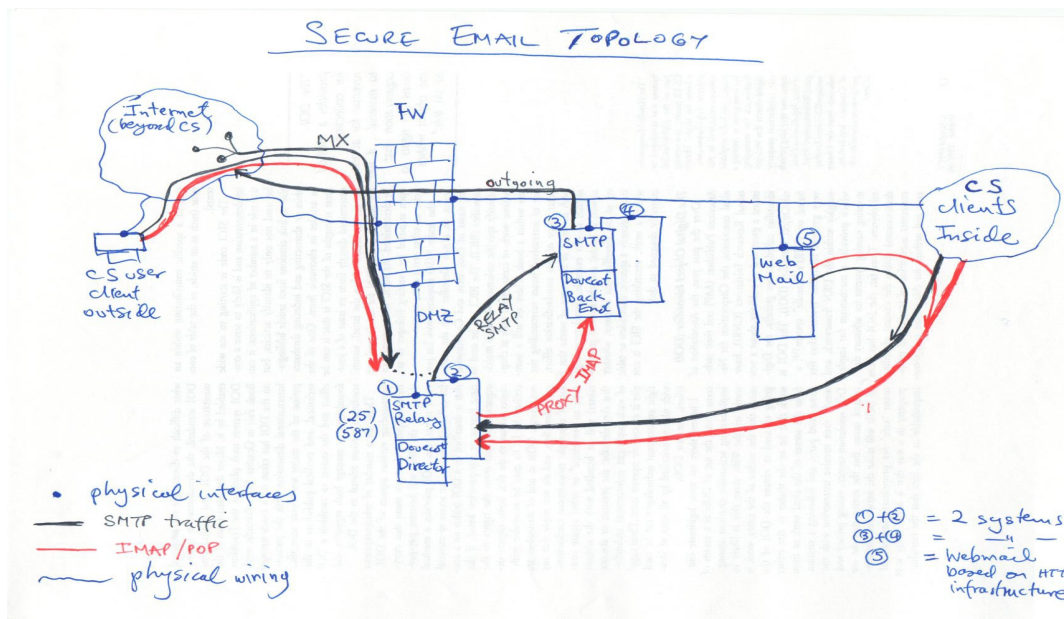 SECURE EMAIL TOPOLOGY
Internet
(beyond CS)
MX
FW
outgoing
CS
clients
Inside
CS user
client
outside
③
SMTP
Dovecot
Back
End
④
⑤
Web
Mail
DMZ
RELAY
SMTP
PROXY IMAP
①
②
(25)
(587)
SMTP
Relay
Dovecot
Director
• physical interfaces
SMTP traffic
IMAP/POP
physical wiring
①+② = 2 systems
③+④ = —〃—
⑤ = Webmail
based on HTT
infrastructure